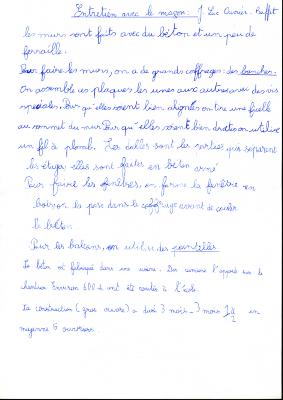 Entretien avec le maçon. J Luc Buffet
les murs sont faits avec du béton et un peu de
ferraille.
Pour faire les murs, on a de grands coffrages: des banches.
On assemble ces plaques les unes aux autres avec des vis
spéciales. Pour qu'elles soient bien alignées on tire une ficelle
au sommet du mur. Pour qu'elles soient bien droites on utilise
un fil à plomb. Les dalles sont les parties qui séparent
les étages elles sont faites en béton armé
Pour faire les fenêtres, on forme la fenêtre en
bois, on la pose dans le coffrage avant de couler
le béton.
Pour les balcons, on utilise des
Le béton est fabriqué dans une usine. Des camions l'apportent sur le
chantier. Environ 600 t ont été coulés à l'école.
La construction (gros œuvre) a duré 3 mois - 3 mois 1/2 en
moyenne 6 ouvriers.